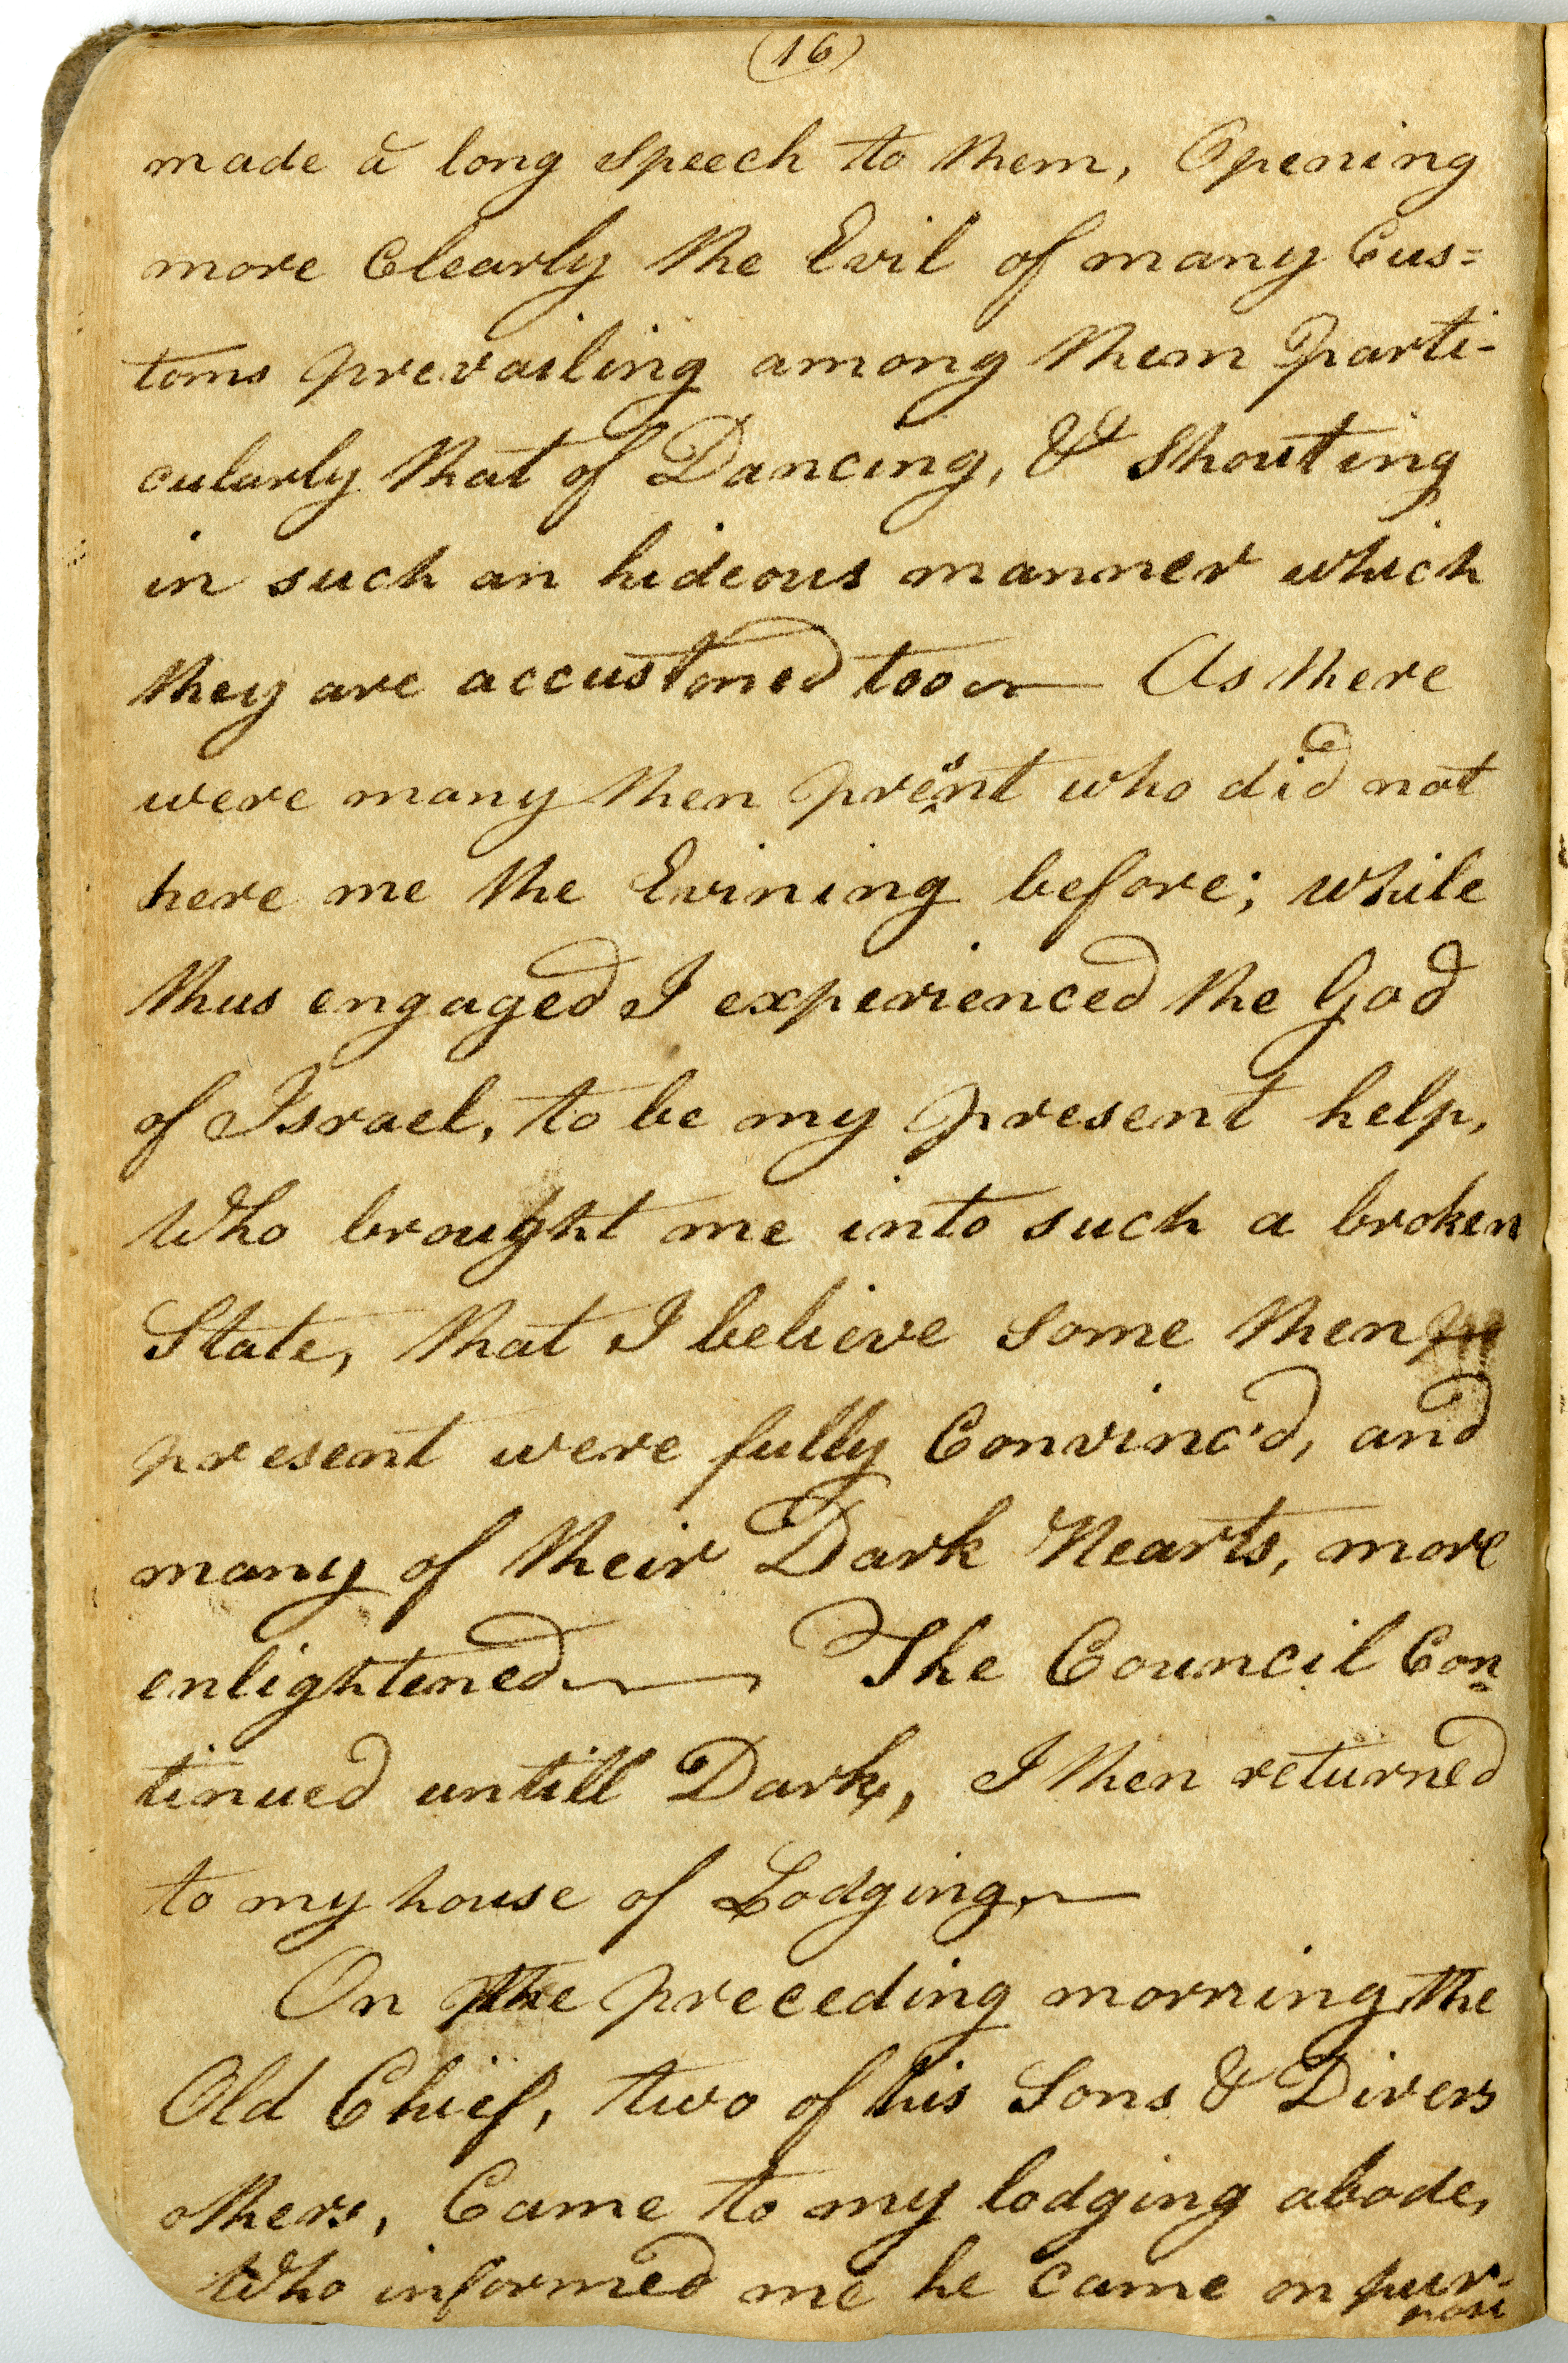 (16)
made a long speech to them, Opening
more Clearly the Evil of many Cus=
toms prevailing among them Parti-
cularly that of Dancing, & Shouting
in such an hideous manner which
they are accustomed too — As there
were many then present who did not
here me the Evining before; while
thus engaged I experienced the God
of Israel, to be my present help,
Who brought me into such a broken
State, that I believe some then pre
present were fully Convinc'd, and
many of their Dark Hearts, more
enlightened — The Council Con=
tinued untill Dark, I then returned
to my house of Lodging, —
On the preceding morning the
Old Chief, two of his Sons & Divers
others, Came to my lodging abode,
Who informed me he came on pur-
pose